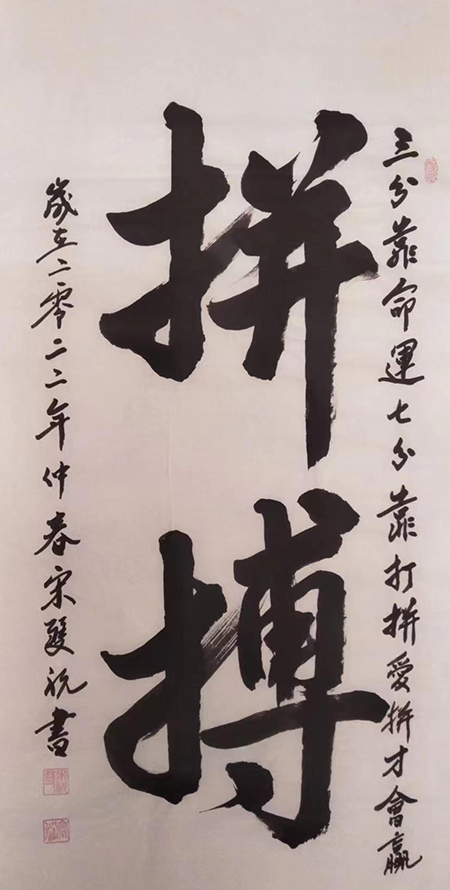 三分靠命運七分靠打拼愛拼才會贏
拼搏
歲在二零二二年仲春宋雙祝書